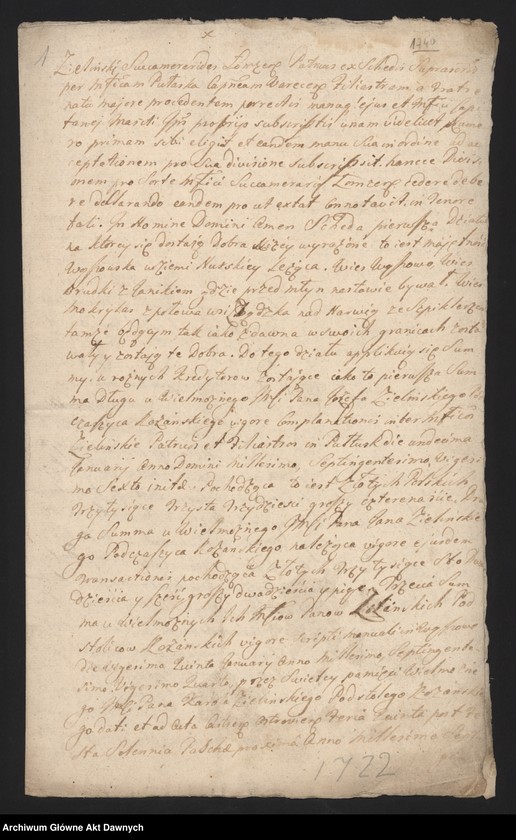 1740
1
Zieliński Succamerarides Łomzen Patruus ex Schedis Supra
per Mficam Capneam Varecen Filiastram a Fratre
natu majore procedentem
tanei Marsti propriis subscriptis unam videlicet
primam sibi eligit et eandem manu sua in ordine ad ac
ceptationem pro Sua divisione subscripsit hancce Divisi
onem pro Sorte Mfici Succamerarij Łomzen cedere debe
re declarando eandem pro ut extat connotavit in Tenore
tali. In Nomine Domini Amen Scheda pierwsza Działu
na ktorey się dostaią Dobra niżey wyrażone to iest
w Ziemi Nurskiey Leżąca. Wies Wyszowę, Wies
Brudki z łanikiem gdzie przed młyn na stawie bywał. Wies
Mokrylas z połową wsi nad Narwią ze Szpiklerzem
tamże będącym tak iako zdawna w swoich granicach zosta
wały y zostaią te Dobra. Do tego działu applikuią się Sum
my u rożnych Kredytorow zostaiące iako to pierwsza Sum
ma długu u Wielmożnego JMsci Pana Jozefa Zielinskiego Pod
czaszyca Rożańskiego vigore Complanationis inter Mficos
Zielinskie Patruos et Filiastros in Pułtusk die undecima
Januarij Anno Domini Millesimo, Septingentesimo, Vigesi
mo Sexto initæ. Pochodząca to iest Złotych Polskich
Trzy tysiące Trzysta Trzydziesci groszy czternascie. Dru
ga Summa u Wielmożnego JMsci Pana Jana Zielinskie
go Podczaszyca Rożanskiego należąca vigore ejusdem
transactionis pochodząca Złotych Trzy tysiące Sto Dwa
dziescia y szesc groszy dwadziescia y pięc. Trzecia Sum
ma u Wielmożnych Ich Msciow Panow Rożanskich Pod
stolicow Rożanskich vigore Scripti manualis in
Vicesima Quinta Januarij Anno Millesimo, Septingente
simo Vigesimo Quarto, przez Swiętey pamięci Wielmożne
go JMsci Pana Karola Zielinskiego Podstolego Rożanskie
go dati et ad Acta Castren Feria Quinta post Fe
sta Solennia Paschæ proxima Anno Millesimo
1722
Archiwum Główne Akt Dawnych